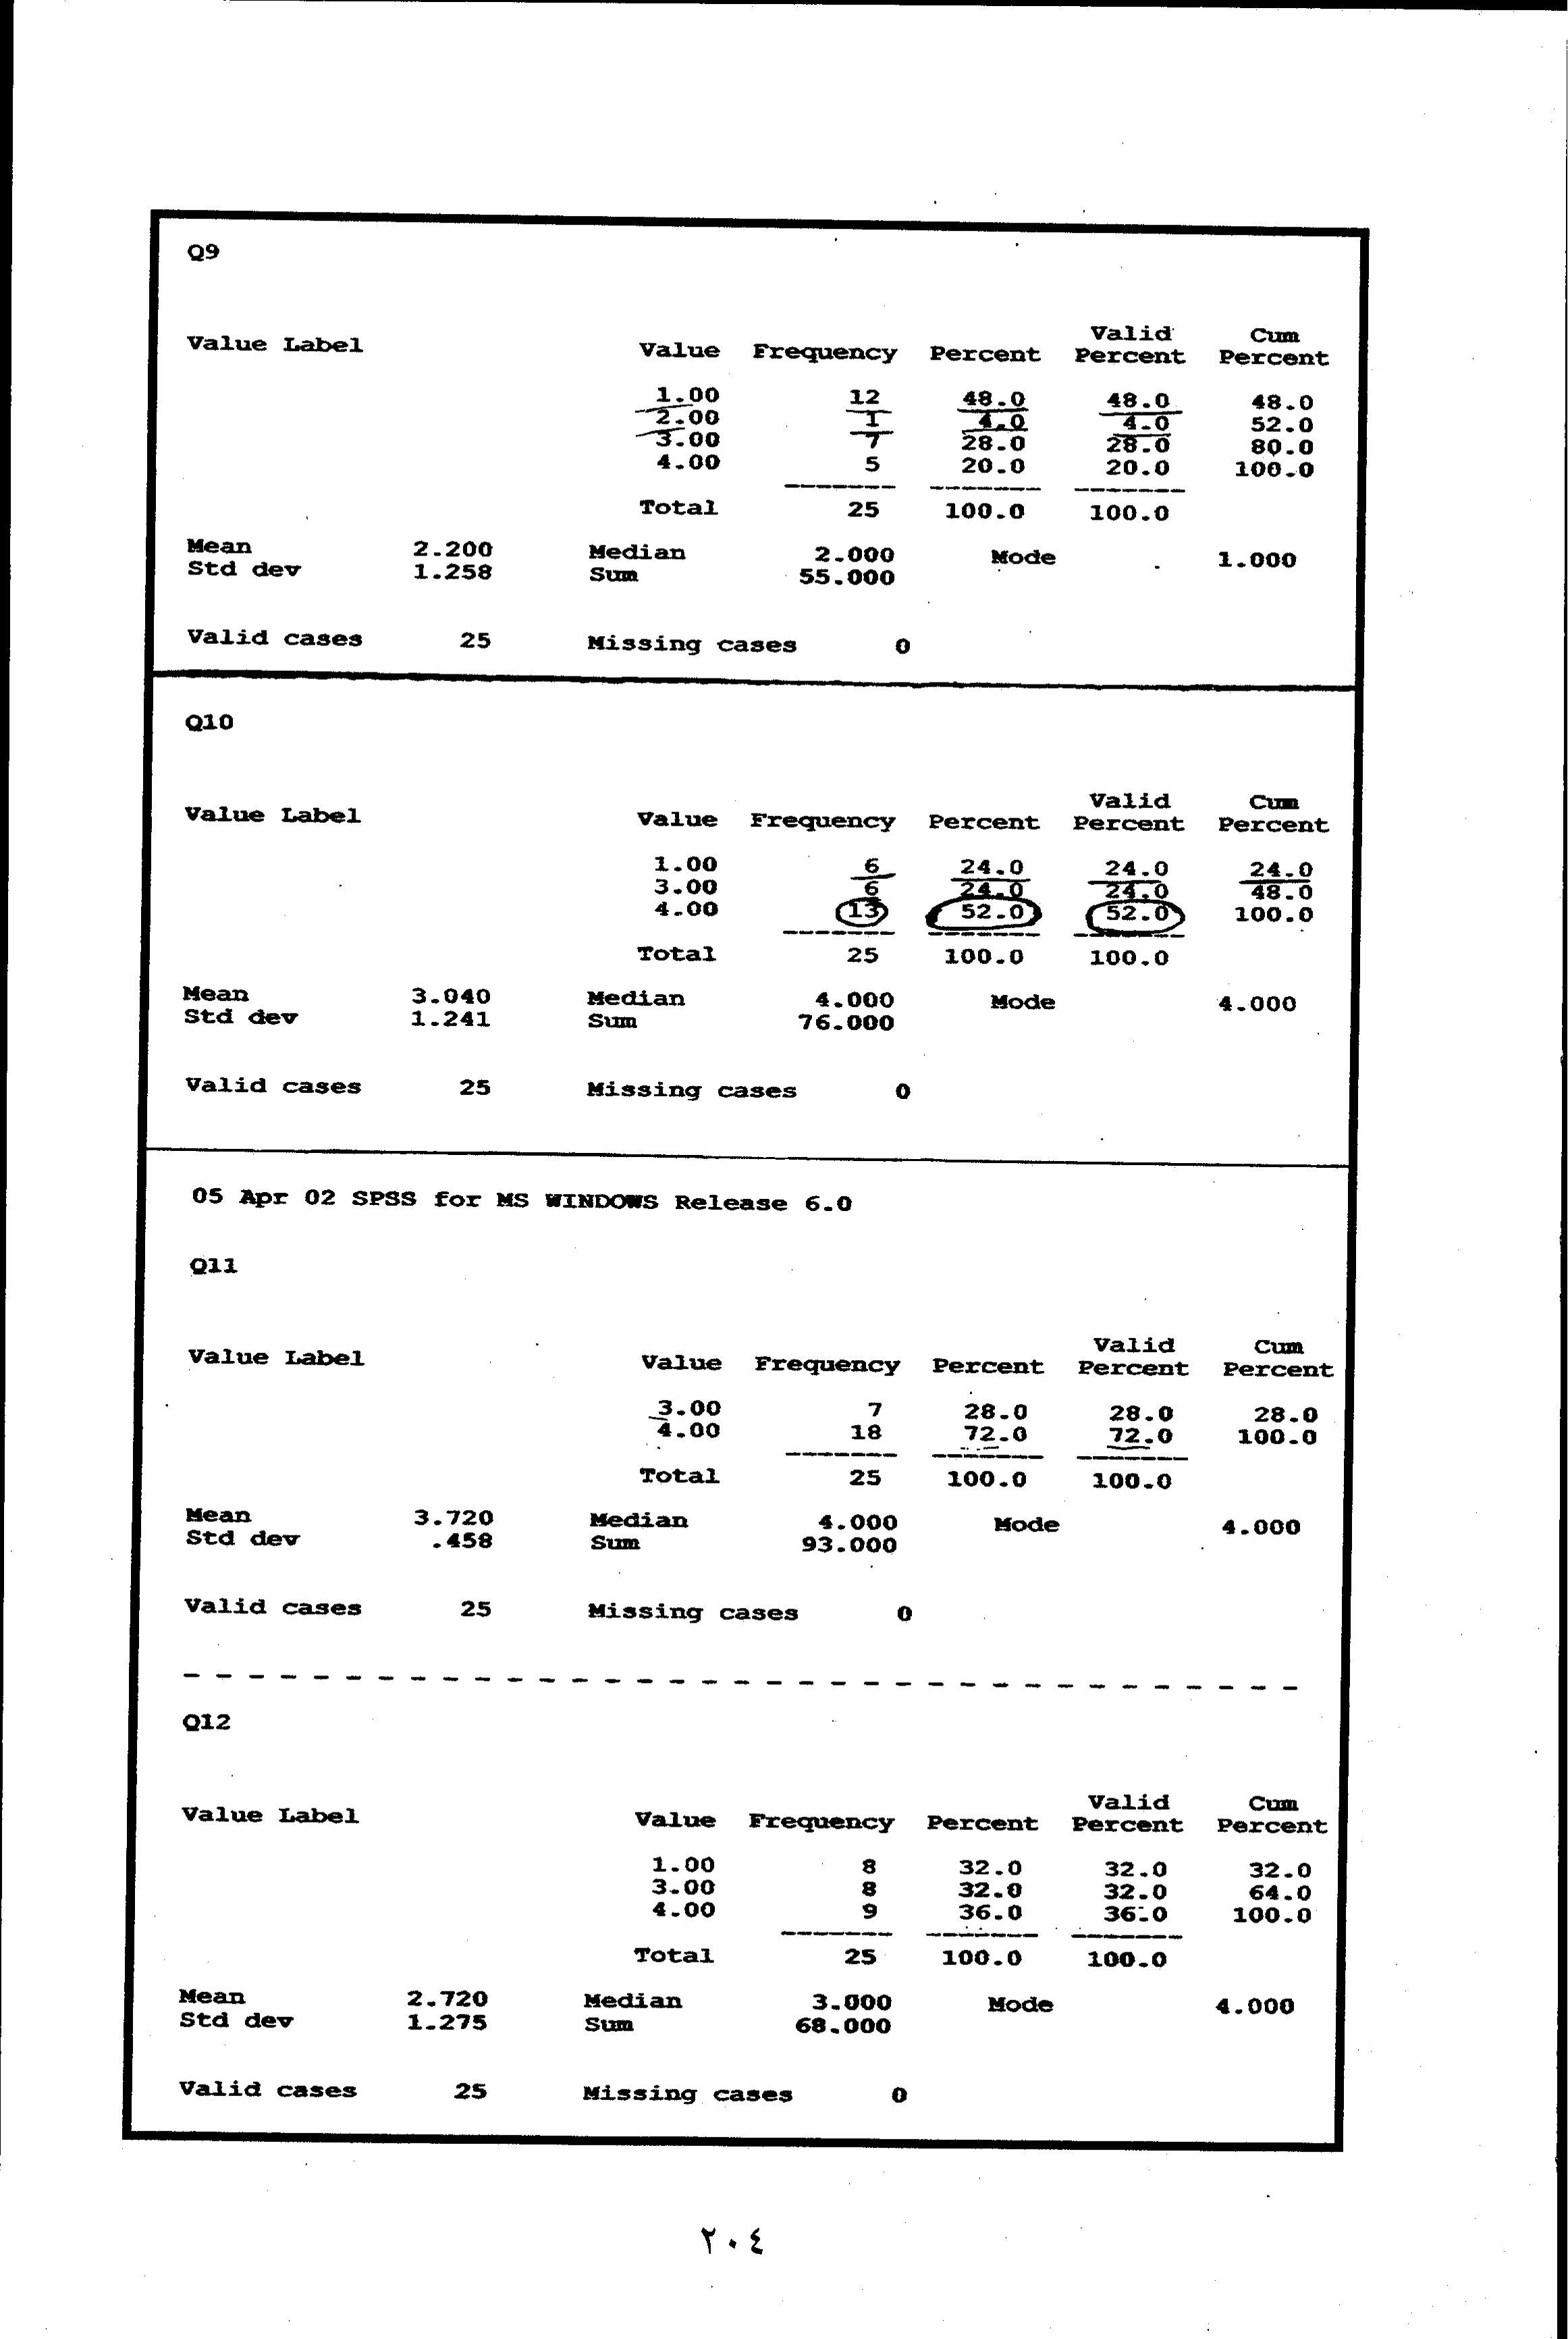 Q9
Value Label Value Frequency Percent Valid Percent Cum Percent
1.00 12 48.0 48.0 48.0
2.00 1 4.0 4.0 52.0
3.00 7 28.0 28.0 80.0
4.00 5 20.0 20.0 100.0
Total 25 100.0 100.0
Mean 2.200 Median 2.000 Mode 1.000
Std dev 1.258 Sum 55.000
Valid cases 25 Missing cases 0
Q10
Value Label Value Frequency Percent Valid Percent Cum Percent
1.00 6 24.0 24.0 24.0
3.00 6 24.0 24.0 48.0
4.00 13 52.0 52.0 100.0
Total 25 100.0 100.0
Mean 3.040 Median 4.000 Mode 4.000
Std dev 1.241 Sum 76.000
Valid cases 25 Missing cases 0
05 Apr 02 SPSS for MS WINDOWS Release 6.0
Q11
Value Label Value Frequency Percent Valid Percent Cum Percent
3.00 7 28.0 28.0 28.0
4.00 18 72.0 72.0 100.0
Total 25 100.0 100.0
Mean 3.720 Median 4.000 Mode 4.000
Std dev .458 Sum 93.000
Valid cases 25 Missing cases 0
Q12
Value Label Value Frequency Percent Valid Percent Cum Percent
1.00 8 32.0 32.0 32.0
3.00 8 32.0 32.0 64.0
4.00 9 36.0 36.0 100.0
Total 25 100.0 100.0
Mean 2.720 Median 3.000 Mode 4.000
Std dev 1.275 Sum 68.000
Valid cases 25 Missing cases 0
٢٠٤